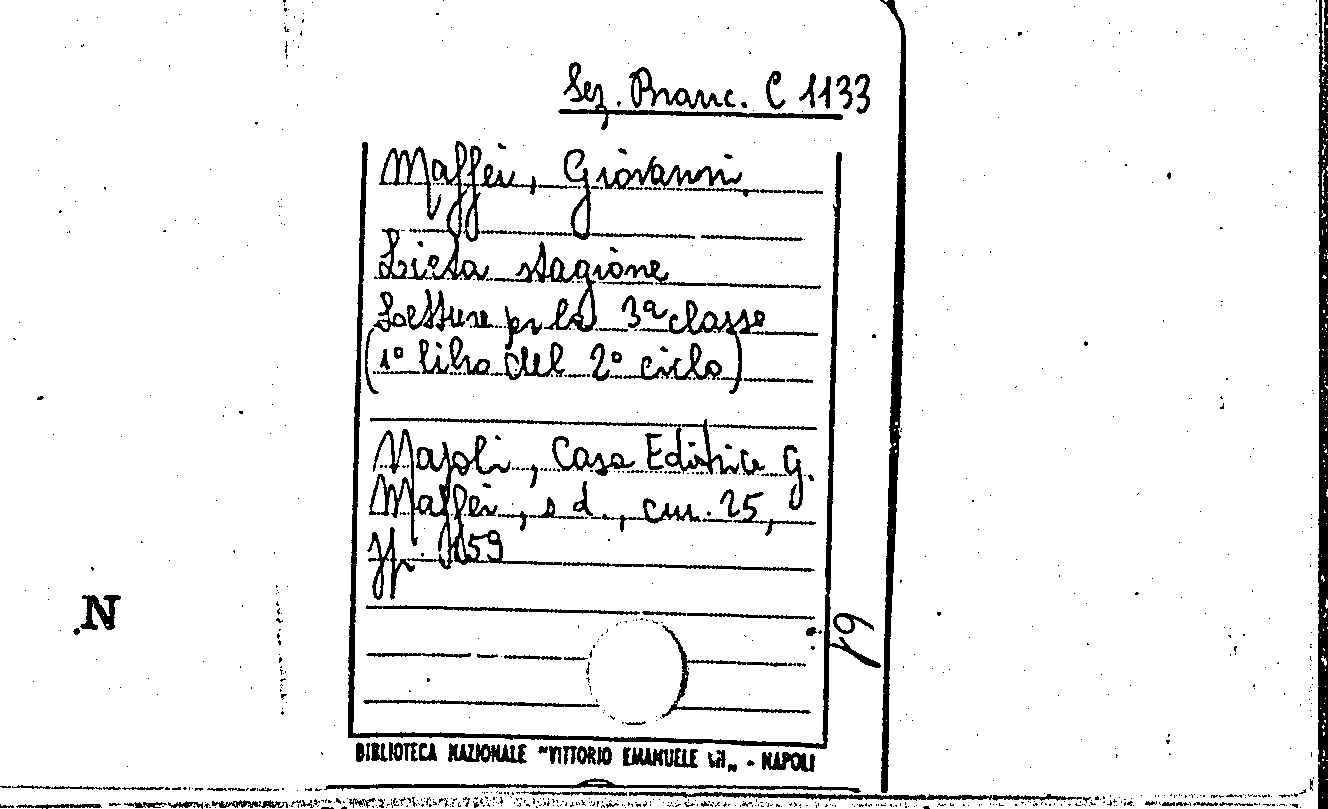 Sez. Branc. C 1133
Maffei, Giovanni.
Lieta stagione
Letture per la 3ª classe
(1° libro del 2° ciclo)
Napoli, Casa Editrice G.
Maffei, s d., cm. 25,
pp. 159
N
BIBLIOTECA NAZIONALE "VITTORIO EMANUELE III" - NAPOLI